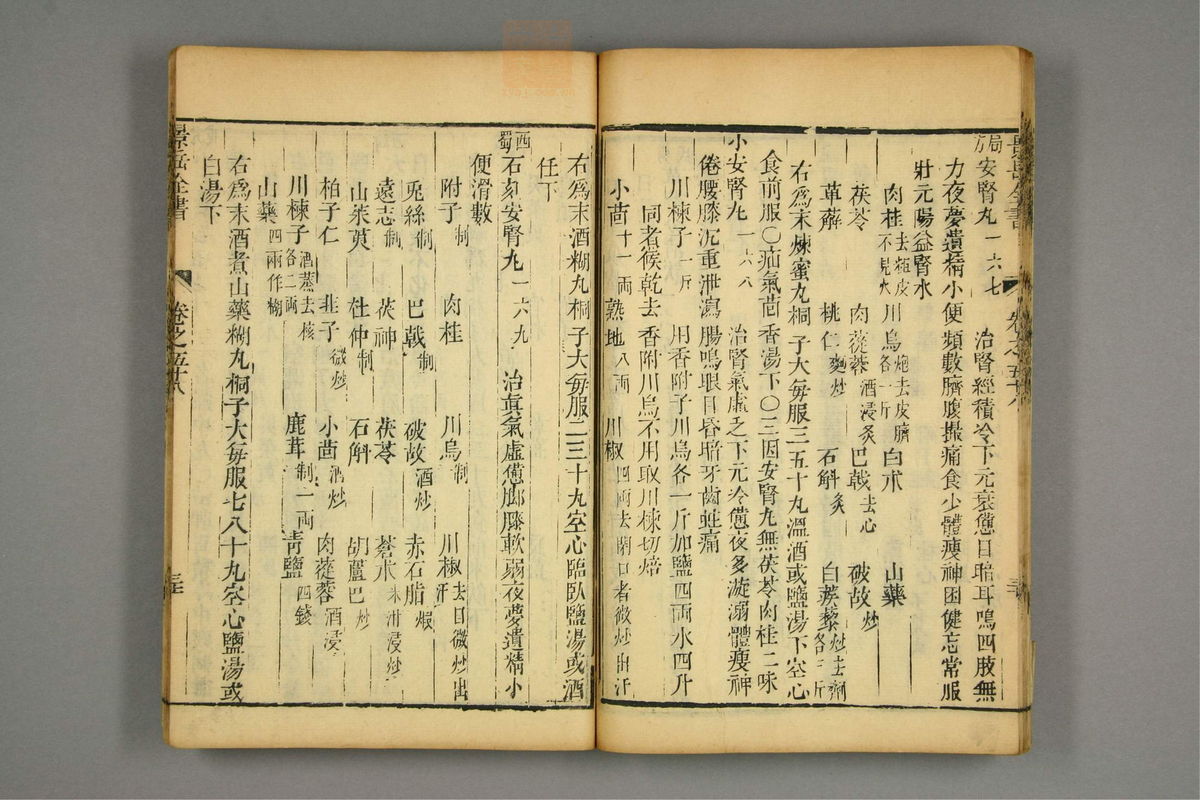 景岳全書 卷之五十八
局方安腎丸一六七 治腎經積冷下元衰憊目暗耳鳴四肢無
力夜夢遺精小便頻數臍腹撮痛食少體瘦神困健忘常服
壯元陽益腎水
肉桂去粗皮不見火 川烏炮去皮臍各一斤 白朮 山藥
茯苓 肉蓯蓉酒浸炙 巴戟去心 破故炒
萆薢 桃仁麩炒 石斛炙 白蒺藜炒去刺各三斤
右為末煉蜜丸桐子大每服三五十丸溫酒或鹽湯下空心
食前服○疝氣茴香湯下○三因安腎丸無茯苓肉桂二味
小安腎丸一六八 治腎氣虛乏下元冷憊夜多漩溺體瘦神
倦腰膝沉重泄瀉腸鳴眼目昏暗牙齒蛀痛
川楝子一斤 用香附子川烏各一斤加鹽四兩水四升
同煮候乾去香附川烏不用取川楝切焙
小茴十一兩 熟地八兩 川椒四兩去閉口者微炒出汗
右為末酒糊丸桐子大每服二三十丸空心臨臥鹽湯或酒
任下
西蜀石刻安腎丸一六九 治真氣虛憊腳膝軟弱夜夢遺精小
便滑數
附子制 肉桂 川烏制 川椒去目微炒出汗
兎絲制 巴戟制 破故酒炒 赤石脂煆
遠志制 茯神 茯苓 蒼朮米泔浸炒
山茱萸 杜仲制 石斛 胡蘆巴炒
柏子仁 韭子微炒 小茴酒炒 肉蓯蓉酒浸
川楝子酒蒸去核各二兩 鹿茸制一兩 青鹽四錢
山藥四兩作糊
右為末酒煮山藥糊丸桐子大每服七八十丸空心鹽湯或
白湯下
景岳全書 卷之五十八